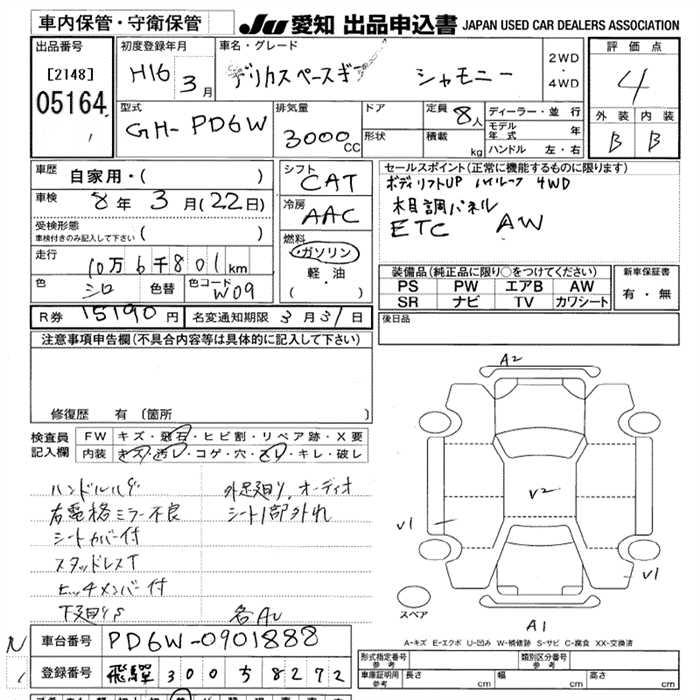 車内保管・守衛保管
JU 愛知 出品申込書 JAPAN USED CAR DEALERS ASSOCIATION
出品番号
[2148]
05164
初度登録年月
H16 3月
車名・グレード
デリカスペースギア シャモニー
2WD
・
4WD
評価点
4
外装 内装
B B
型式
GH-PD6W
排気量
3000CC
ドア
形状
定員 8人
積載 kg
ディーラー・並行
モデル年式 年
ハンドル 左・右
車歴
自家用・( )
車検
8年3月(22日)
受検形態
車検付きのみ記入して下さい ( )
走行
10万6千801km
色 シロ 色替 色コード W09
R券 15190円 名変通知期限 3月31日
シフト
CAT
冷房
AAC
燃料
・ガソリン
軽・油
( )
セールスポイント(正常に機能するものに限ります)
ボディリフトUP ハイルーフ 4WD
木目調パネル
ETC AW
装備品(純正品に限り○をつけてください)
PS PW エアB AW
SR ナビ TV カワシート
新車保証書
有・無
後日品
注意事項申告欄(不具合内容等は具体的に記入して下さい)
修復歴 有(箇所
検査員記入欄
FW キズ・飛石・ヒビ割・リペア跡・X要
内装 キズ・汚レ・コゲ・穴・スレ・キレ・破レ
ハンドルハゲ 外足廻り、オーディオ
右電格ミラー不良 シート1部外れ
シートカバー付
スタッドレスT
ヒッチメンバー付
下廻りS 各AU
A2
V2
V1
V1
A1
スペア
A-キズ E-エクボ U-凹み W-補修跡 S-サビ C-腐食 XX-交換済
車台番号 PD6W-0901888
登録番号 飛騨 300 ち 8272
形式指定番号 参考
類別区分番号 参考
車庫証明用 参考 長さ cm 幅 cm 高さ cm